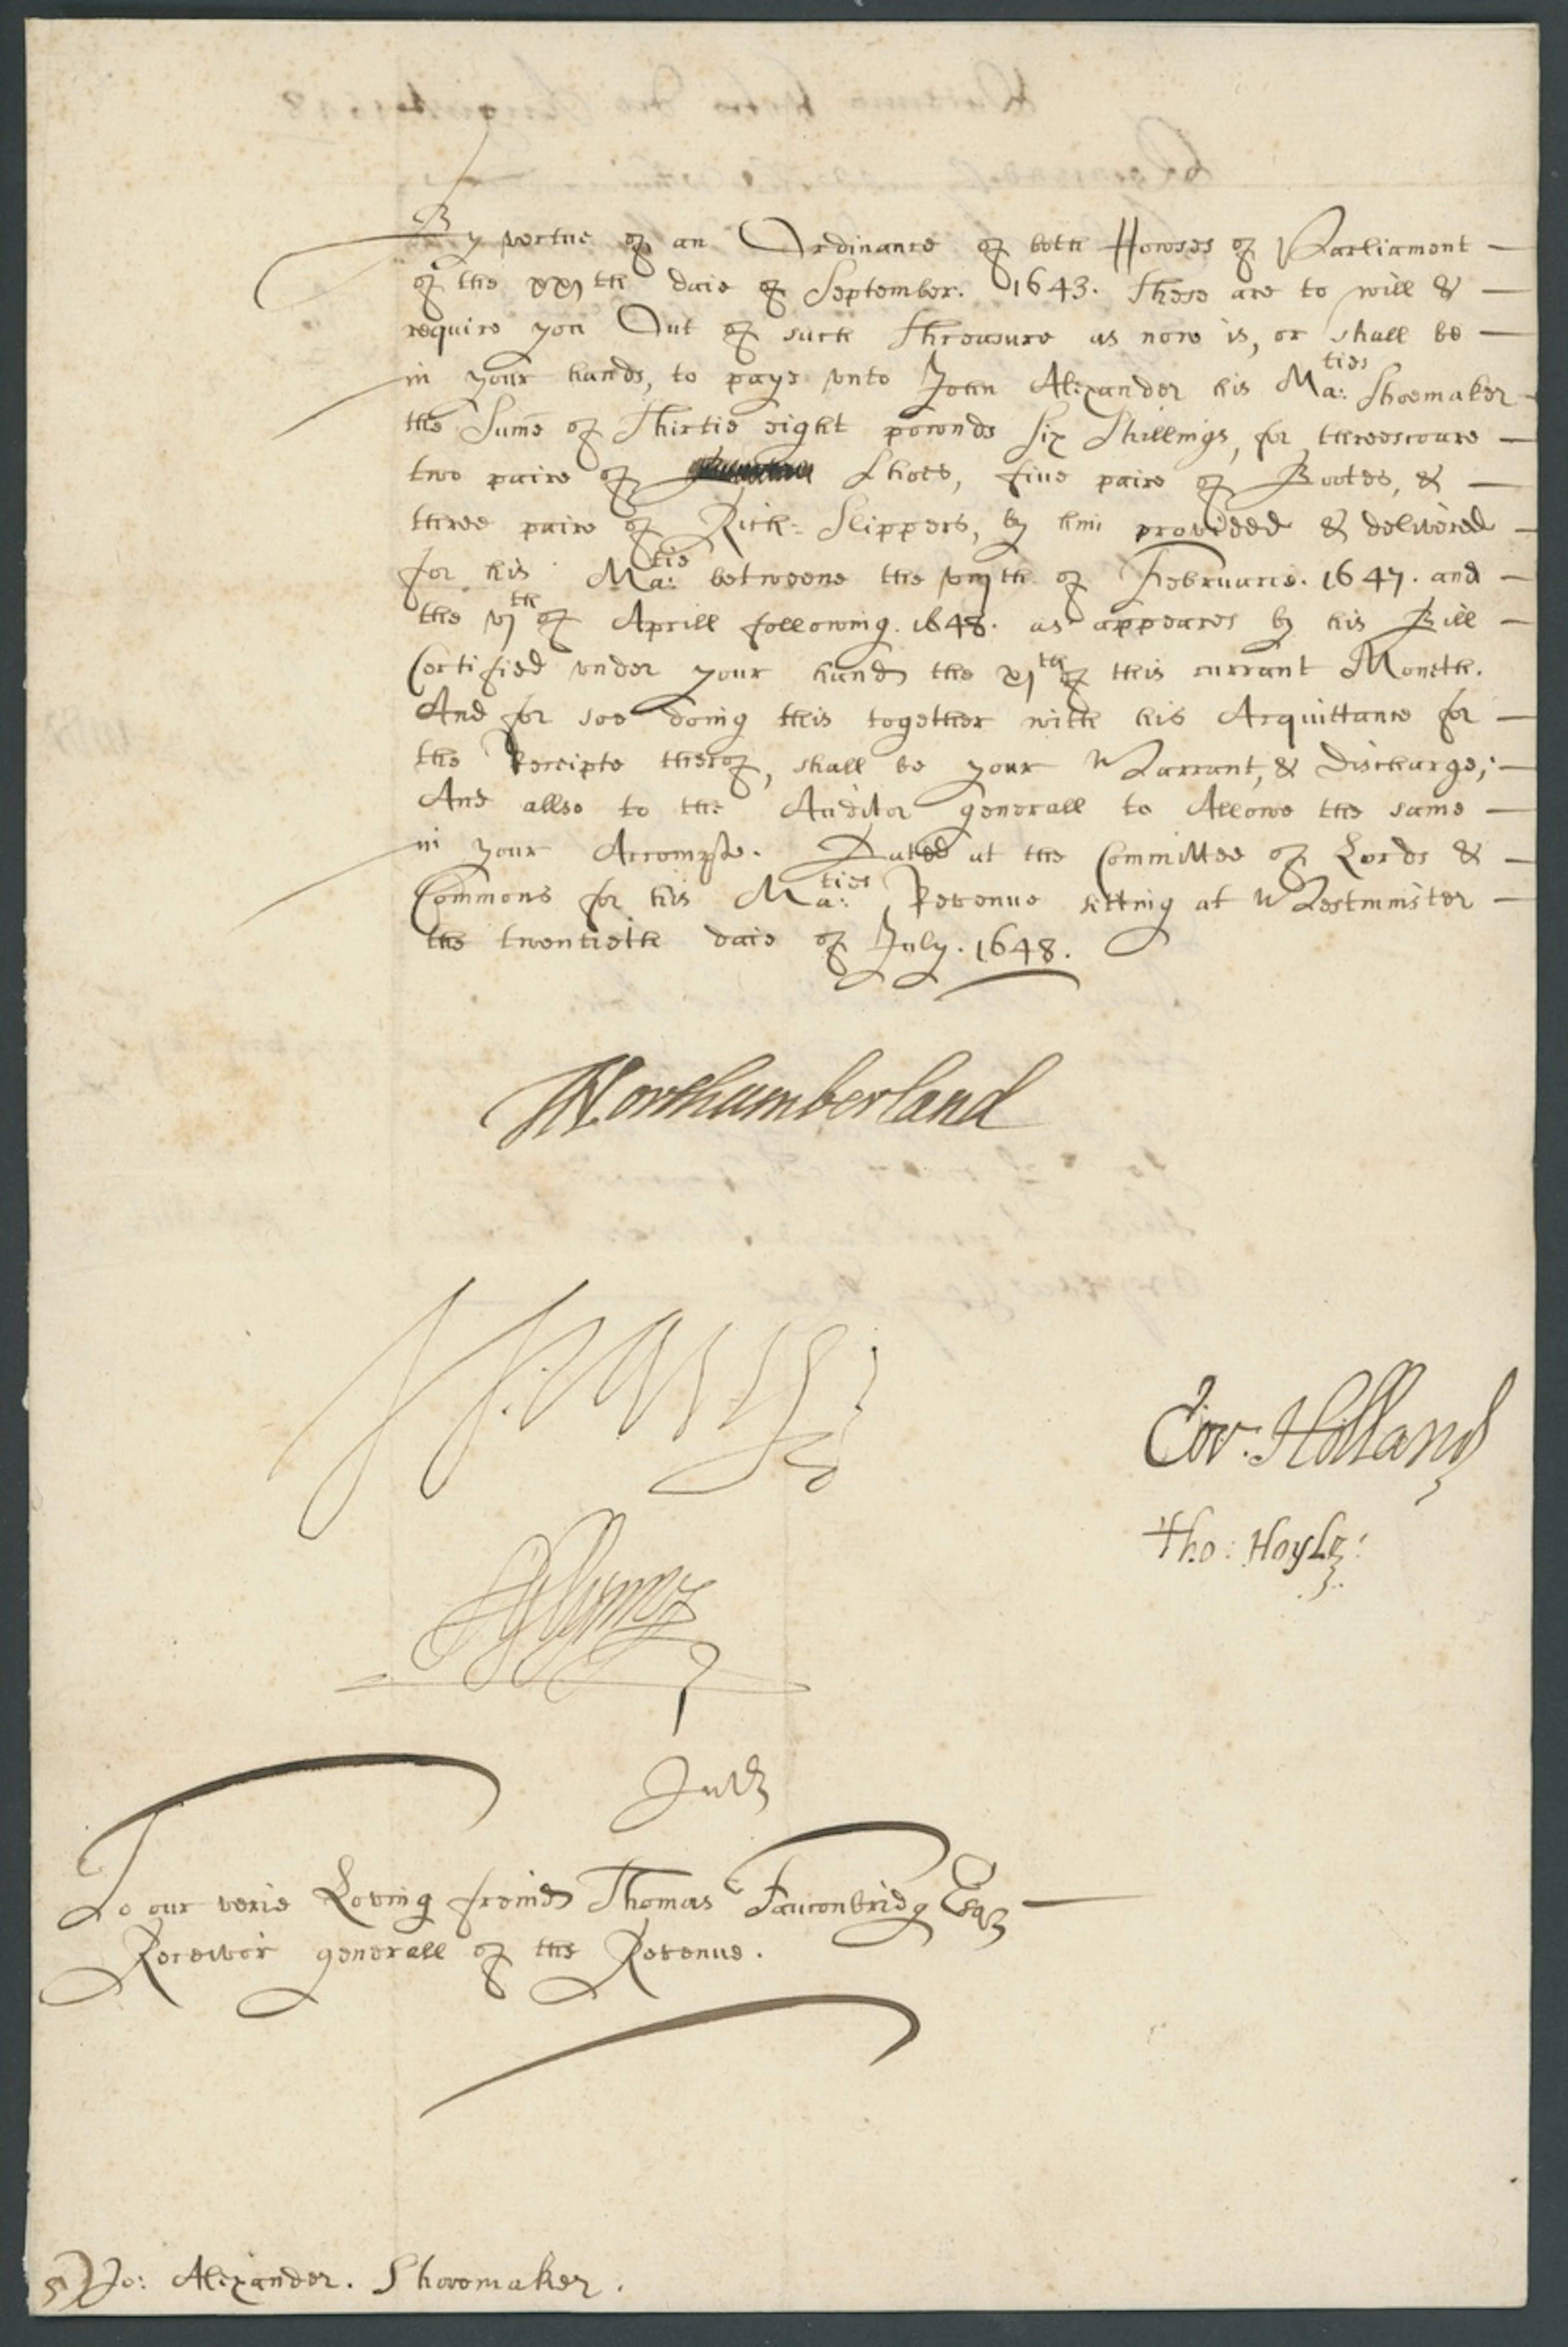 By vertue of an Ordinance of both Howses of Parliament
of the xxjth daie of September. 1643. These are to will &
require you Out of such Threasure as now is, or shall be
in your hands, to paye vnto John Alexander his Ma:ties Shoemaker
the Sume of Thirtie eight pownds six Shillings, for threescoare
two paire of Shoes, fiue paire of Bootes, &
three paire of Rich= Slippers, by him provided & delivered
for his Ma:tie betweene the vnjth of Februarie. 1647. and
the vjth of Aprill following. 1648. as appeares by his Bill
Certified vnder your hand the xjth of this currant Moneth.
And for soe doing this together with his Acquittance for
the Receipte therof, shall be your Warrant, & Discharge;
And allso to the Auditor generall to Allowe the same
in your Accompte. Dated at the Committee of Lords &
Commons for his Ma:ties Revenue sitting at Westminster
the twentieth daie of July. 1648.
Northumberland
HVane
Cor: Holland
Tho: Hoyle:
To our verie Loving freind Thomas Fauconbridg Esqr
Receivor generall of the Revenue.
Jo: Alexander. Shooemaker.